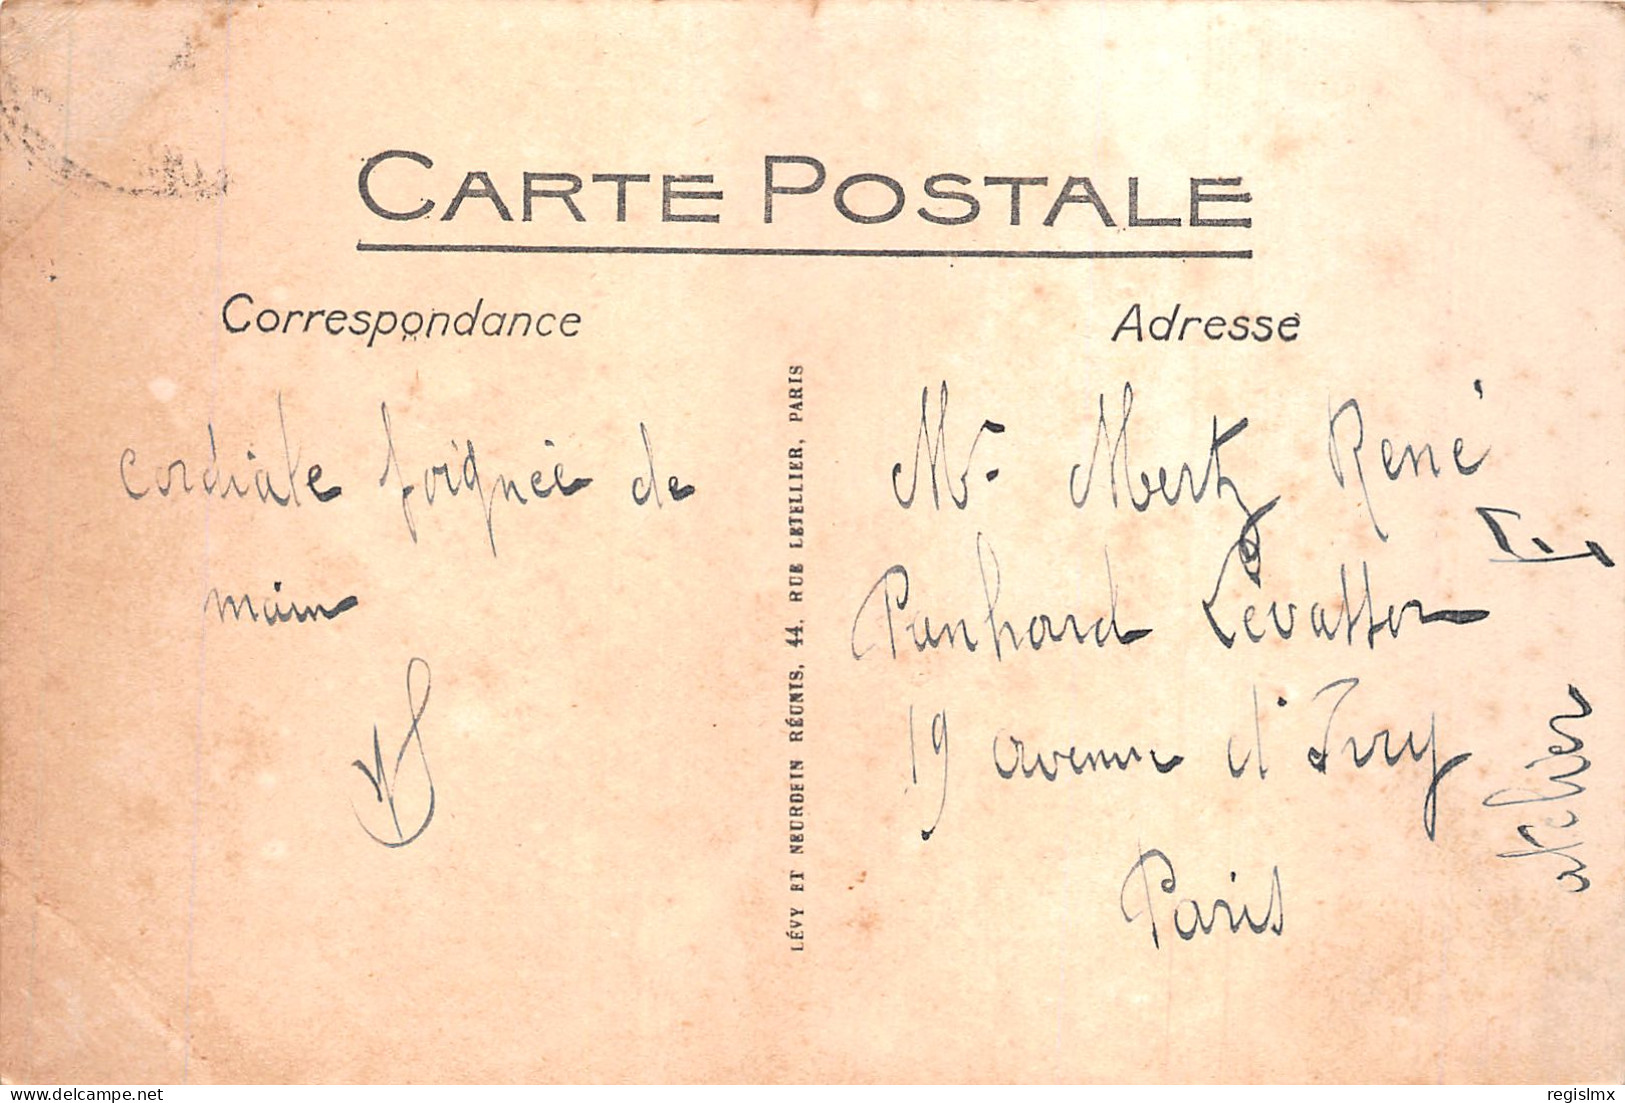 CARTE POSTALE
Correspondance
Adresse
cordiale poignée de
main
LÉVY ET NEURDEIN RÉUNIS, 44, RUE LETELLIER, PARIS
Mr Mertz René
Panhard Levassor
19 avenue d'Ivry
Paris
atelier
regislmx